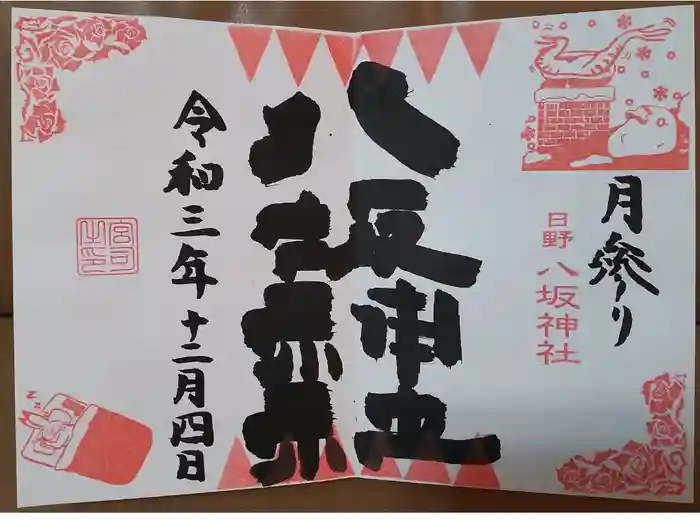 月参り
日野
八坂神社
八坂神社
令和三年十二月四日
宮司之印
zz